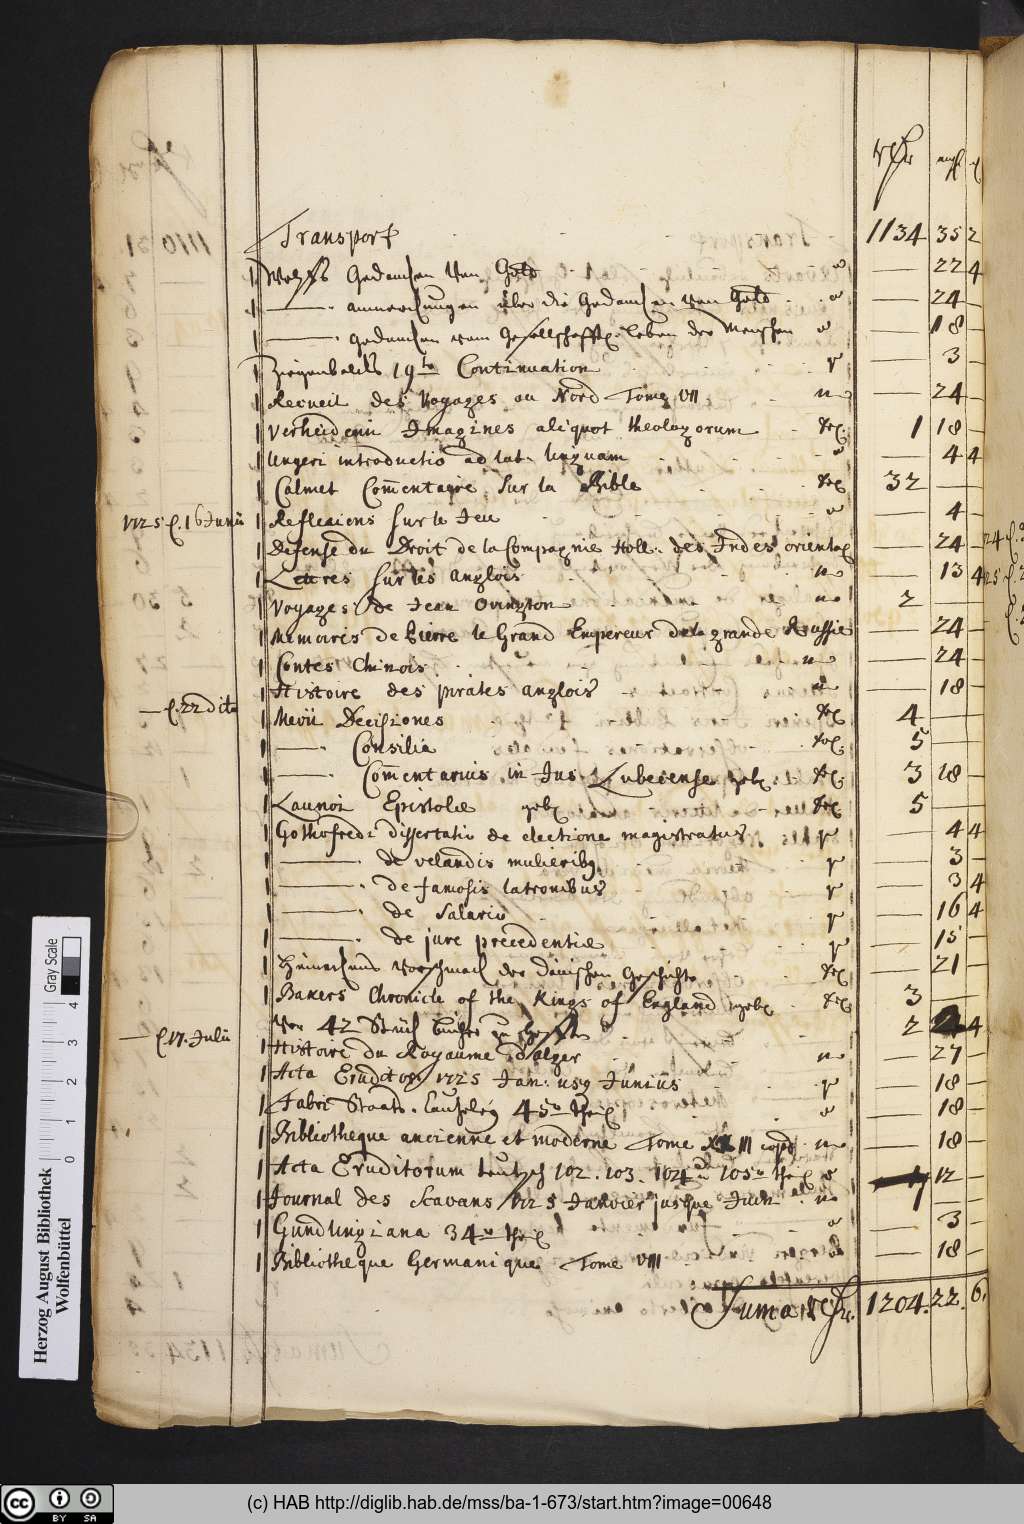 rthr mgl
Transport 1134 35 2
1 Wolffs Gedancken von Gott — 22 4
1 —— anmerckungen über die Gedancken von Gott — 24 —
1 —— gedancken vom Gesellschafftl. leben der Menschen — 18 —
1 Ziegenbalchs 19te Continuation — 3 —
1 Recueil des Voyages au Nord Tome VII — 24 —
1 Verheidenii Imagines aliquot theologorum 1 18 —
1 Ungeri introductio ad lat. linguam — 4 4
1 Calmet Com̃entaire sur la Bible 32 — —
1725 d. 16 Junii 1 Reflexions sur le Jeu — 4 —
1 Defense du Droit de la Compagnie Holl. des Indes oriental — 24 —
1 Lettres sur les anglois — 13 4
1 Voyages de Jean Ovington 2 — —
1 Memoires de Pierre le Grand Empereur de la grande Russie — 24 —
1 Contes Chinois — 24 —
1 Histoire des pirates anglois — 18 —
— d. 22 dito 1 Mevii Decisiones 4 — —
1 —— Consilia 5 — —
1 —— Com̃entarius in Jus Lubecense geb. 3 18 —
1 Launoi Epistolæ geb. 5 — —
1 Gothofredi dissertatio de electione magistratus — 4 4
1 —— de velandis mulierib9 — 3 —
1 —— de famosis latronibus — 3 4
1 —— de Salario — 16 4
1 —— de jure precedentiæ — 15 —
1 vorschmack der dänischen Geschichte — 21 —
1 Bakers Chronicle of the Kings of England geb. 3 — —
Vor 42 Stück bücher zu 2 4
— d. 17. Julii 1 Histoire du Royaume d'alger — 27 —
1 Acta Eruditor. 1725 Jan: usq Junius — 18 —
1 Fabri Staats-Cantzeley 45r theil — 18 —
1 Bibliotheque ancienne et moderne Tome — 18 —
1 Acta Eruditorum teutsch 102. 103. 104 u 105r theil 12 —
1 Journal des Scavans 1725 Janvier jusque Juin — —
1 Gundlingiana 34r theil — 3 —
1 Bibliotheque Germanique Tome VIII — 18 —
Suma rthr. 1204. 22. 6.
Herzog August Bibliothek
Wolfenbüttel
0 1 2 3 4
Gray Scale
cc BY SA
(c) HAB http://diglib.hab.de/mss/ba-1-673/start.htm?image=00648